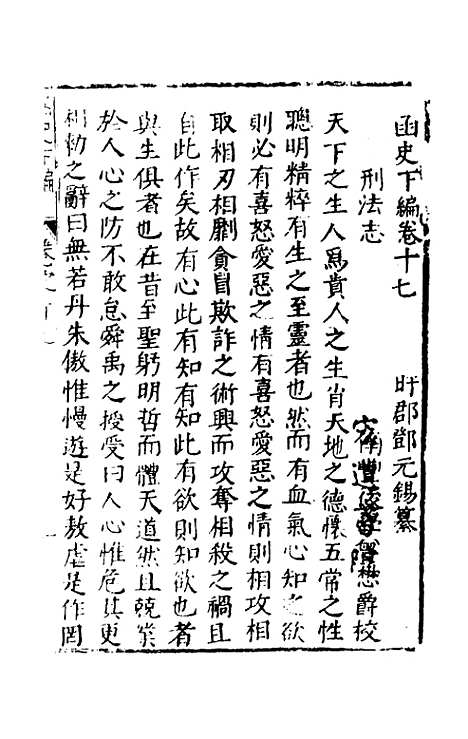 函史下編卷十七
盱郡鄧元錫纂
刑法志
懋爵校
天下之生人爲貴人之生肖天地之德懷五常之性
聰明精粹有生之至靈者也然而有血氣心知之欲
則必有喜怒愛惡之情有喜怒愛惡之情則相攻相
取相刃相劘貪冒欺詐之術興而攻奪相殺之禍且
自此作矣故有心此有知有知此有欲則知欲也者
與生俱者也在昔至聖躬明哲而體天道然且兢業
於人心之防不敢怠舜禹之授受曰人心惟危其更
相勑之辭曰無若丹朱傲惟慢遊是好敖虐是作罔